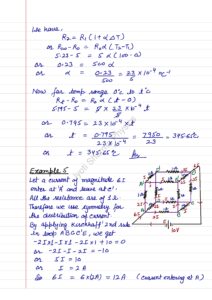 We have,
R₂ = R₁ (1 + α ΔT)
or R₁₀₀ - R₀ = R₀ α (T₂ - T₁)
5.23 - 5 = 5 α (100 - 0)
or 0.23 = 500 α
or α = 0.23/500 = 23/5 × 10⁻⁴ °C⁻¹
Now for temp. range 0°C to t°C
Rt - R₀ = R₀ α (t - 0)
5.795 - 5 = 5 × 23/5 × 10⁻⁴ . t
or 0.795 = 23 × 10⁻⁴ × t
or t = 0.795/(23 × 10⁻⁴) = 7950/23 = 345.65°C
or t = 345.65°C Ans
Example 5
Let a current of magnitude 6I
enters at 'A' and leave at 'C'.
All the resistance are of 1Ω.
Therefore we use symmetry for
the distribution of current
By applying Kirchhoff 2nd rule
in loop ABCC'S', we get
-2I×1 - I×1 - 2I×1 + 10 = 0
or -2I - I - 2I = -10
or 5I = 10
or I = 2A
So 6I = 6×(2A) = 12A (current entering at A)
10V